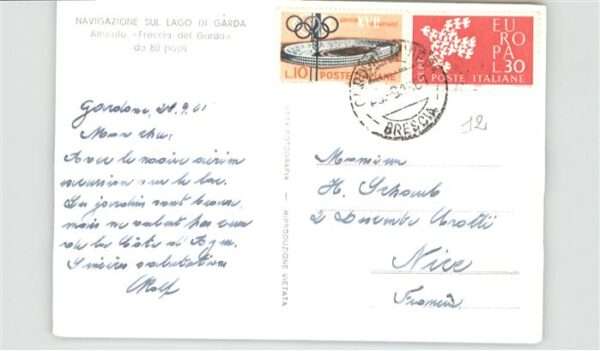 NAVIGAZIONE SUL LAGO DI GARDA
Aliscafo «Freccia del Garda»
da 80 posti
Gardone, 21.9.61
Mon cher,
Avec le notre
excursion sur le lac.
Les jardins sont beaux
mais ne valent pas ceux
de la Côte d'Azur.
Sincères salutations
Rolf
VERA FOTOGRAFIA - RIPRODUZIONE VIETATA
L.10 POSTE ITALIANE
EUROPA L.30
POSTE ITALIANE
BRESCIA
12
Monsieur
H. Schaub
2 Descente Crotti
Nice
France